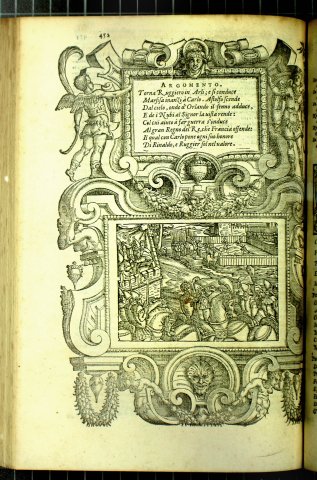 452
ARGOMENTO.
Torna Ruggiero in Arli; e si conduce
Marfisa inanzi à Carlo. Astolfo scende
Dal cielo, onde d'Orlando il senno adduce,
E de i Nubi al Signor la vista rende:
Col cui aiuto à far guerra s'induce
Al gran Regno del Re, che Francia offende:
Il qual con Carlo pone ogni suo honore
Di Rinaldo, e Ruggier sol nel valore.